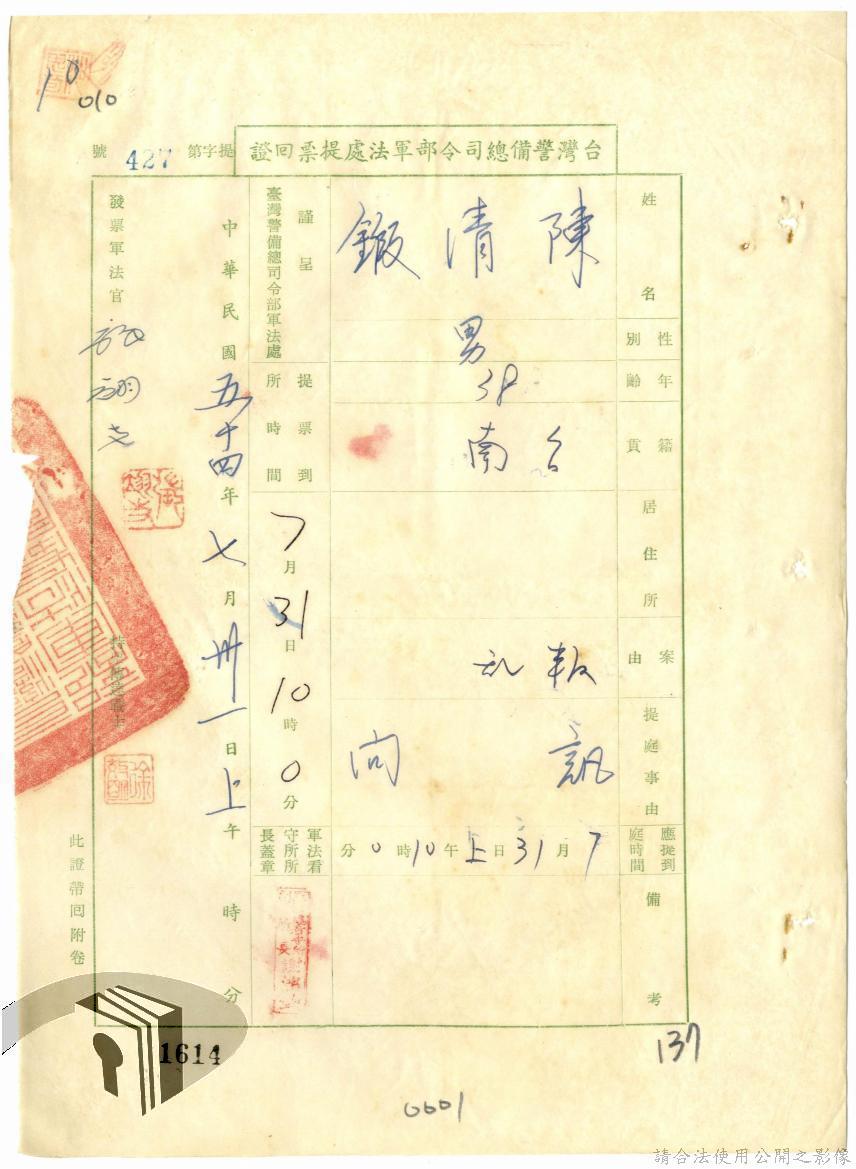 10
010
台灣警備總司令部軍法處提票回證
提字第 427 號
姓名 陳清鍛
性別 男
年齡 38
籍貫 台南
居住所
案由 叛乱
提庭事由 訊问
應提到庭時間 7月31日上午10時0分
備考
謹呈
臺灣警備總司令部軍法處
提票到所時間 7月31日10時0分
軍法看守所所長蓋章
中華民國五十四年七月卅一日上午 時 分
發票軍法官
此證帶回附卷
1614
137
0001
請合法使用公開之影像